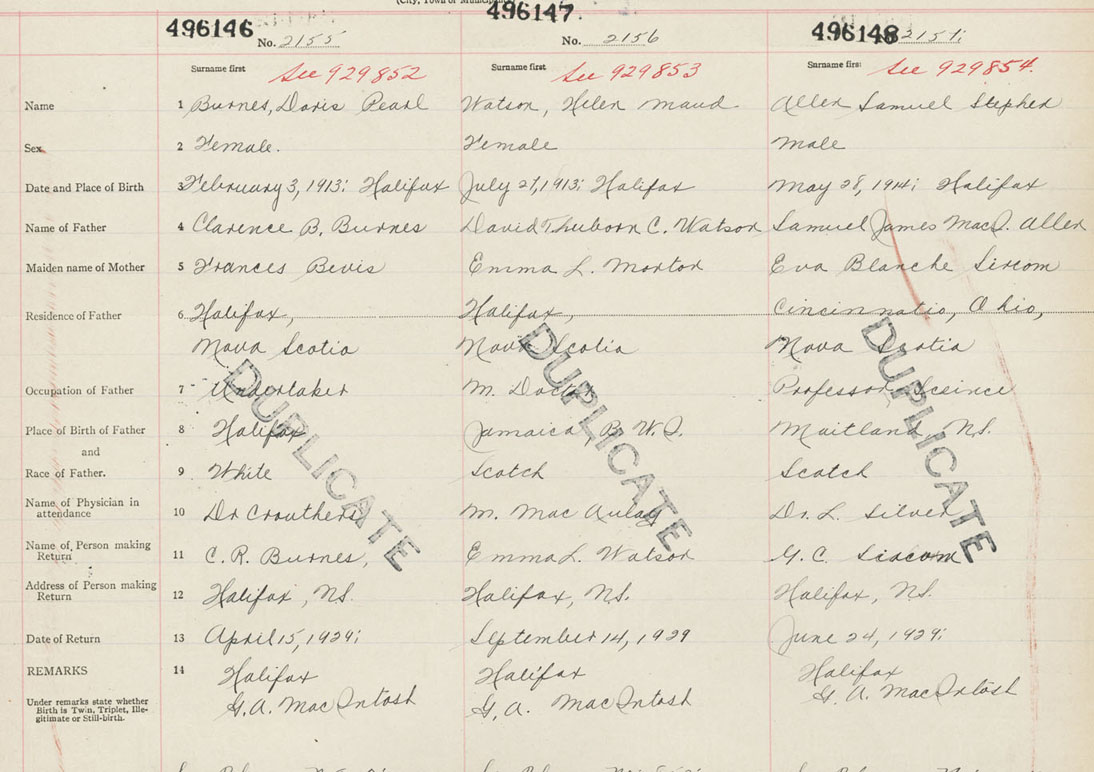 (City, Town or Municipality)
496146 496147 496148
No. 2155 No. 2156
Surname first Surname first Surname first
See 929852 See 929853 See 929854.
Name 1 Burnes, Doris Pearl Watson, Helen Maud Allen Samuel Stephen
Sex 2 Female. Female Male
Date and Place of Birth 3 February 3, 1913; Halifax July 27, 1913; Halifax May 28, 1914; Halifax
Name of Father 4 Clarence B. Burnes David C. Watson Samuel James Allen
Maiden name of Mother 5 Frances Bevis Emma L. Morton Eva Blanche Sircom
Residence of Father 6 Halifax, Halifax, Cincinnatio, Ohio,
Nova Scotia Nova Scotia Nova Scotia
Occupation of Father 7 Undertaker M. Doctor Professor Scsince
Place of Birth of Father 8 Halifax Jamaica B. W. I. Maitland N.S.
and
Race of Father. 9 White Scotch Scotch
Name of Physician in
attendance 10 Dr Crouthers M. Mac Aulay Dr. L. Silver
Name of Person making
Return 11 C. R. Burnes, Emma L. Watson G. C.
Address of Person making
Return 12 Halifax, N.S. Halifax, N.S. Halifax, N.S.
Date of Return 13 April 15, 1929; September 14, 1929 June 24, 1929;
REMARKS 14 Halifax Halifax Halifax
G. A. MacIntosh G. A. MacIntosh G. A. MacIntosh
Under remarks state whether
Birth is Twin, Triplet, Ille-
gitimate or Still-birth.
DUPLICATE DUPLICATE DUPLICATE